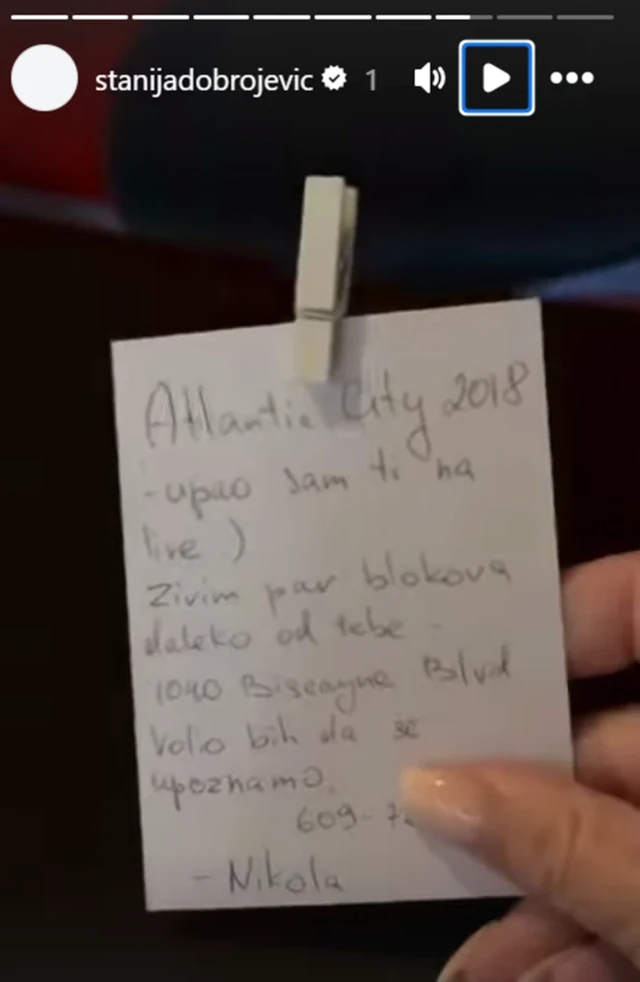 stanijadobrojevic 1
Atlantic City 2018
- upao sam ti na
live )
Zivim par blokova
daleko od tebe -
1040 Biscayne Blvd
Volio bih da se
upoznamo.
609-7
- Nikola